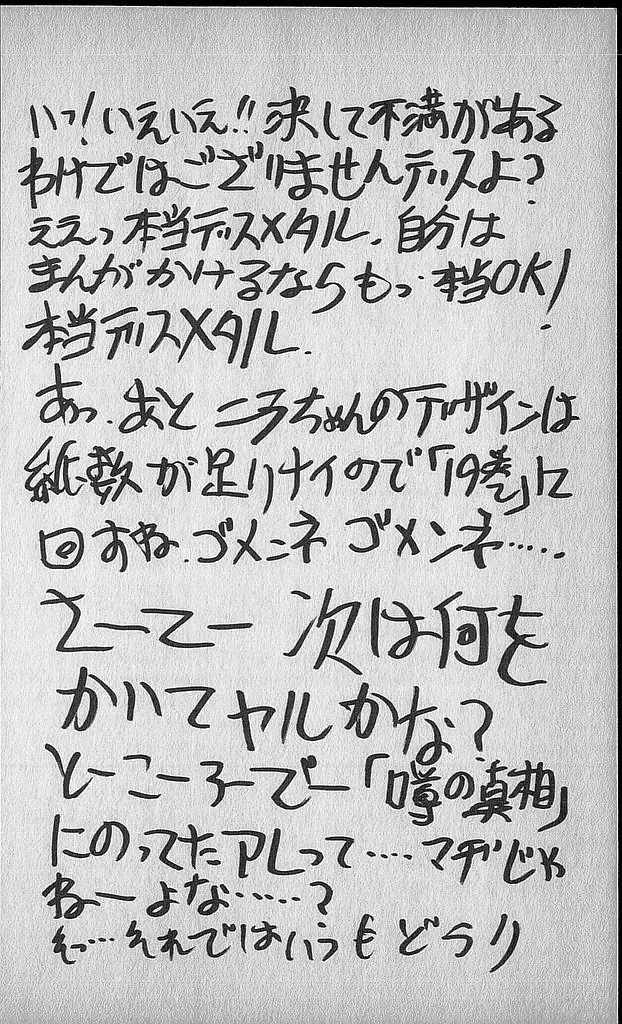 いっ!いえいえ!!決して不満がある
わけではござりませんデスよ?
ええっ本当デスメタル.自分は
まんがかけるならもっ…本当OK!
本当デスメタル.
あっ.あところちゃんのデザインは
紙数が足リナイので「19巻」に
回すね.ゴメンネ ゴメンネ……
さーてー 次は何を
かいてヤルかな?
とーころーでー「噂の真相」
にのってたアレって……マヂじゃ
ねーよな……?
そっ…それではいつもどうり